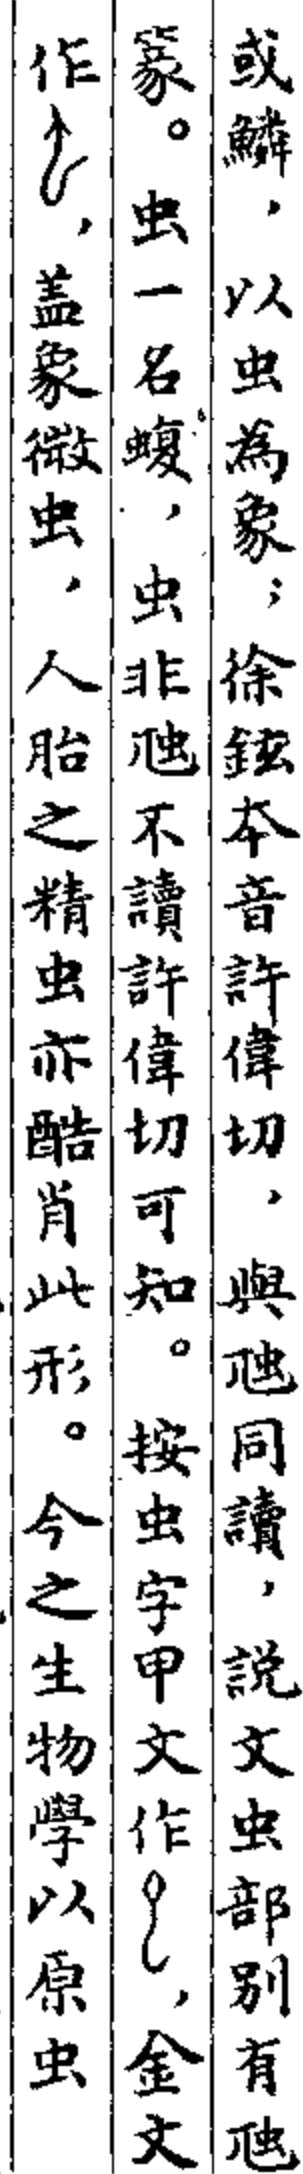 或鱗，以虫為象；徐鉉本音許偉切，與虺同讀，説文虫部别有虺
篆。虫一名蝮，虫非虺不讀許偉切可知。按虫字甲文作，金文
作，盖象微虫，人胎之精虫亦酷肖此形。今之生物學以原虫